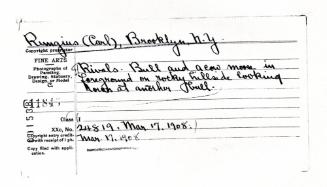 Rungius (Carl), Brooklyn, N.Y.
Copyright proprietor
FINE ARTS
Photographs of
Painting,
Drawing, Statuary,
Design, or Model
Rivals. Bull and a cow moose in
foreground on rocky hillside looking
at another bull.
Class I
XXc, No. 24819. Mar. 17, 1908.
Copyright entry credit-
ed with receipt of 1 ph. Mar. 17, 1908
Copy filed with appli-
cation.